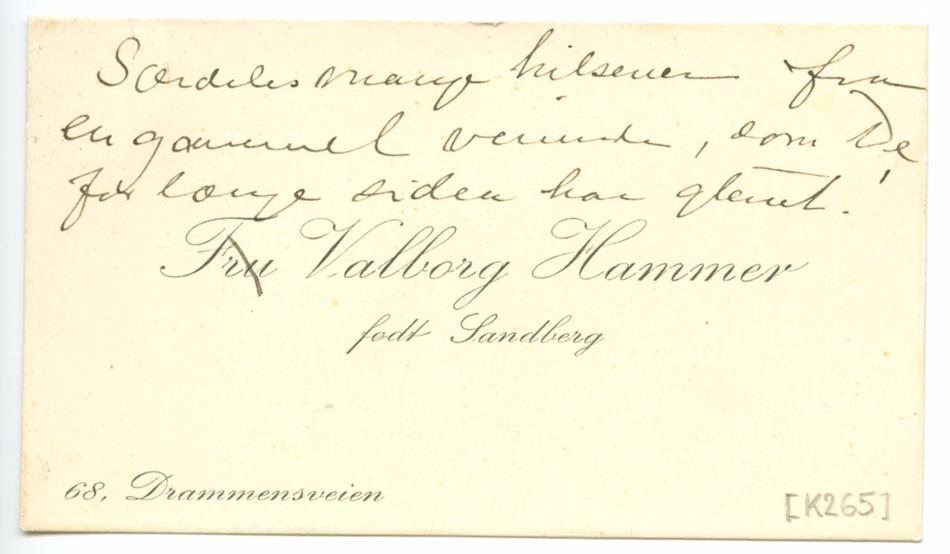 Særdeles mange hilsener fra
en gammel veninde, som De
for længe siden har glemt.
Fru Valborg Hammer
født Sandberg
68, Drammensveien
[K265]